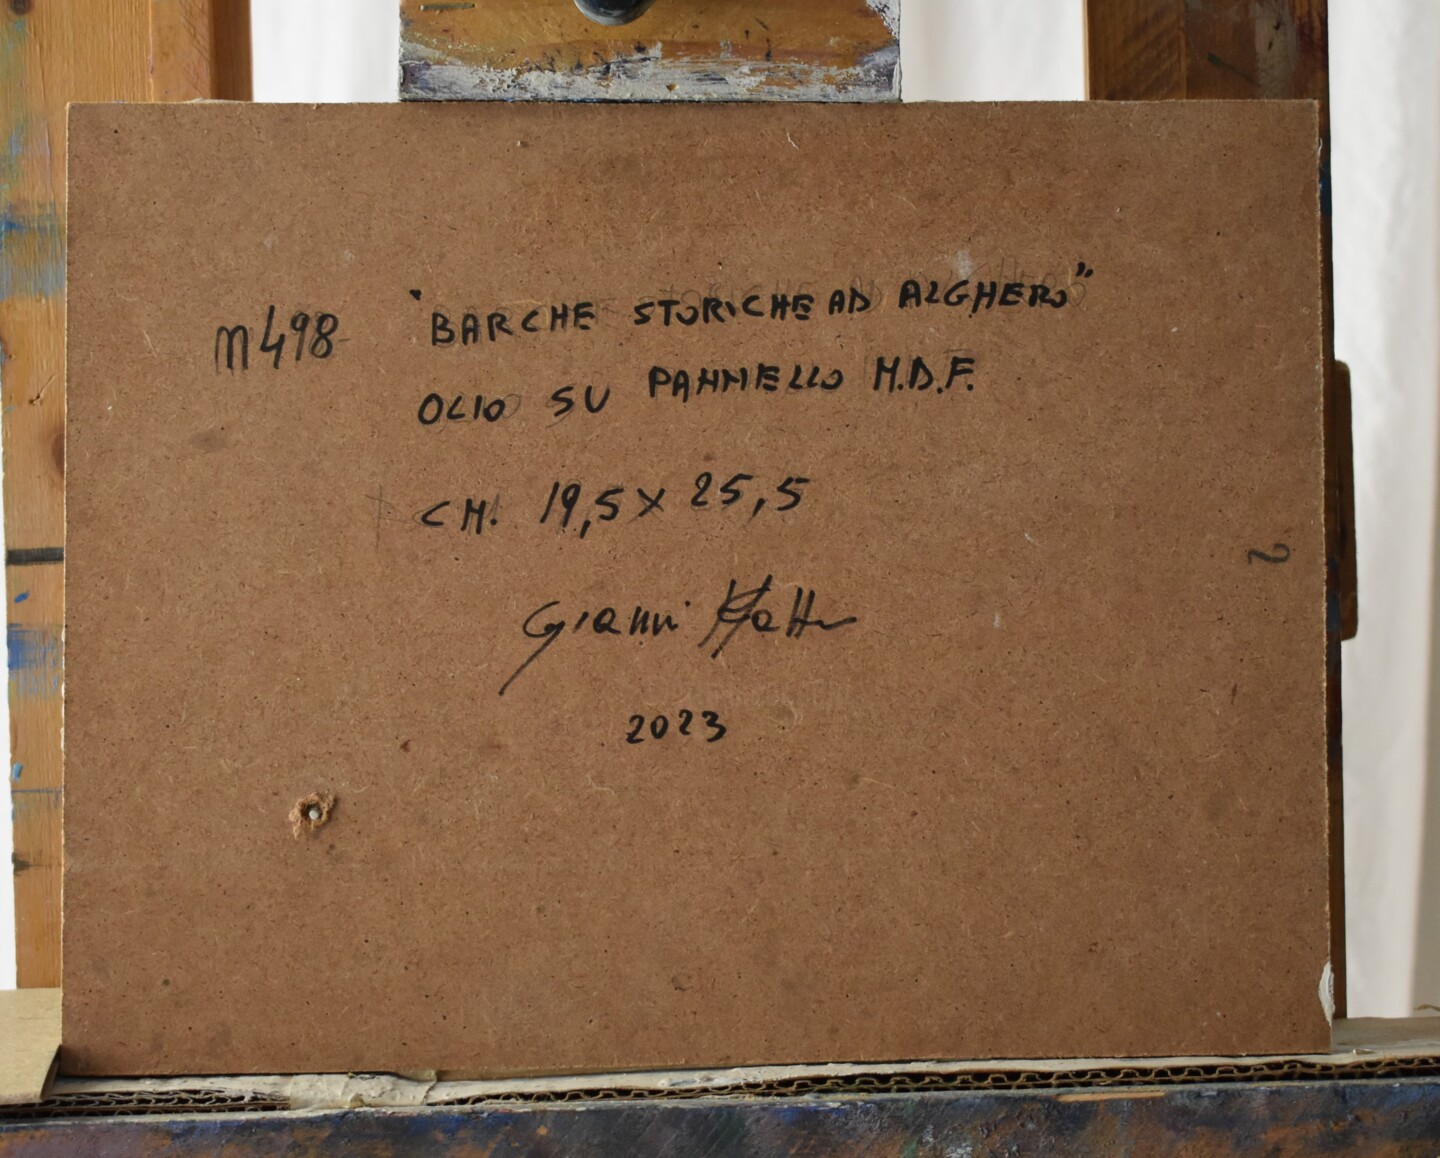 n498 "BARCHE STORICHE AD ALGHERO"
OLIO SU PANNELLO M.D.F.
CM. 19,5 x 25,5
Gianni
2023
2